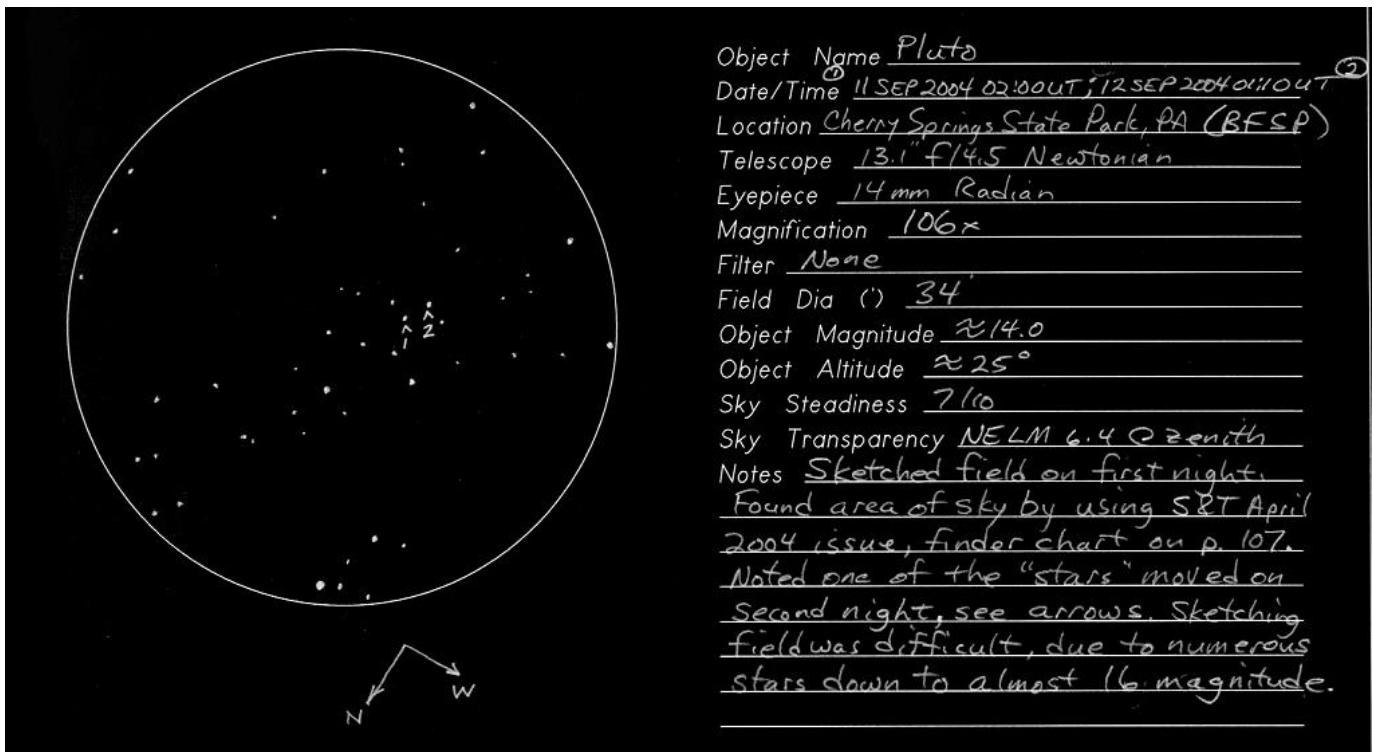 1
2
N
W
Object Name Pluto
Date/Time ① 11 SEP 2004 02:00 UT; 12 SEP 2004 01:10 UT ②
Location Cherry Springs State Park, PA (BFSP)
Telescope 13.1" f/4.5 Newtonian
Eyepiece 14mm Radian
Magnification 106x
Filter None
Field Dia (') 34'
Object Magnitude ≈14.0
Object Altitude ≈25°
Sky Steadiness 7/10
Sky Transparency NELM 6.4 @ zenith
Notes Sketched field on first night.
Found area of sky by using S&T April
2004 issue, finder chart on p. 107.
Noted one of the "stars" moved on
second night, see arrows. Sketching
field was difficult, due to numerous
stars down to almost 16 magnitude.